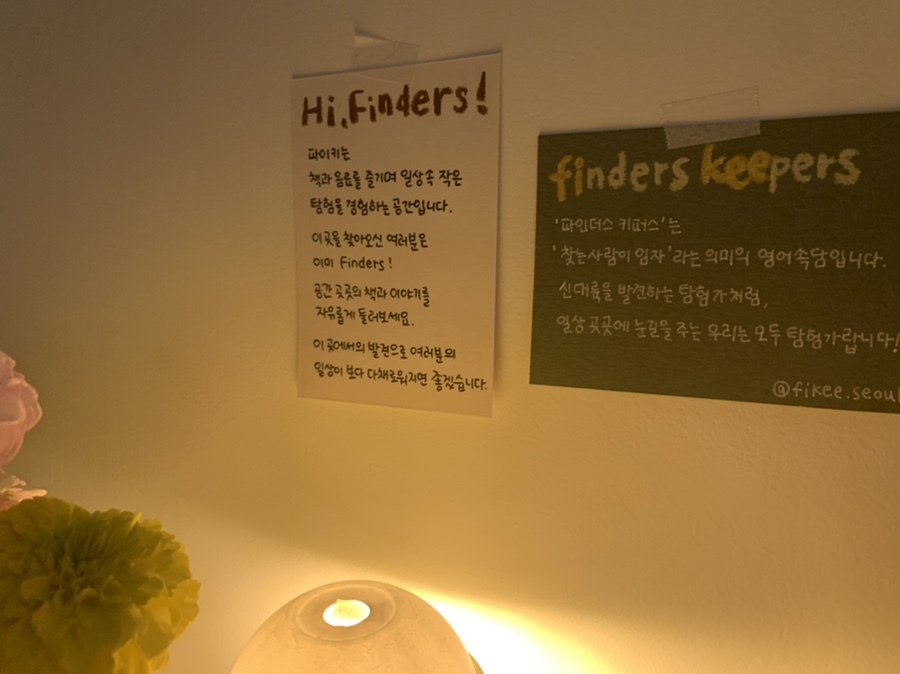 Hi, Finders!
파이키는
책과 음료를 즐기며 일상속 작은
탐험을 경험하는 공간입니다.
이곳을 찾아오신 여러분은
이미 Finders!
공간 곳곳의 책과 이야기를
자유롭게 둘러보세요.
이 곳에서의 발견으로 여러분의
일상이 보다 다채로워지면 좋겠습니다.
finders keepers
'파인더스 키퍼스'는
'찾는사람이 임자'라는 의미의 영어속담입니다.
신대륙을 발견하는 탐험가처럼,
일상 곳곳에 눈길을 주는 우리는 모두 탐험가랍니다!
@fikee.seoul